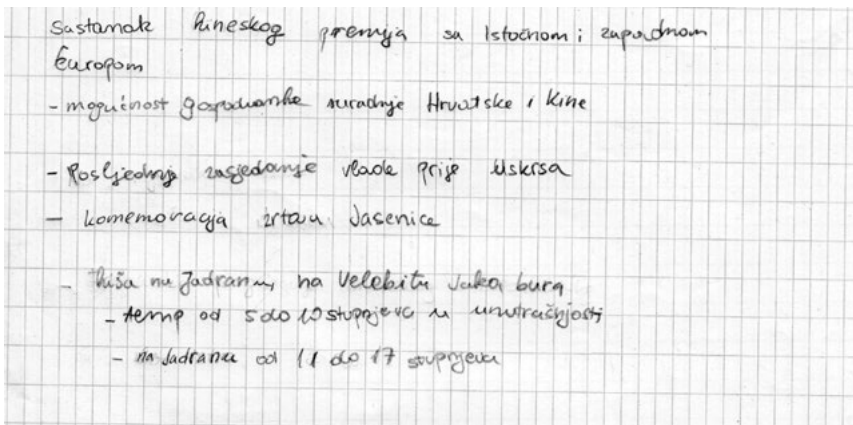 Sastanak kineskog premija sa Istočnom i zapadnom
Europom
- mogućnost gospodarske suradnje Hrvatske i Kine
- Posljednje zasjedanje vlade prije Uskrsa
- komemoracija žrtava Jasenice
- kiša na Jadranu, na Velebitu jaka bura
- temp od 5 do 10 stupnjeva u unutrašnjosti
- na Jadranu od 11 do 17 stupnjeva